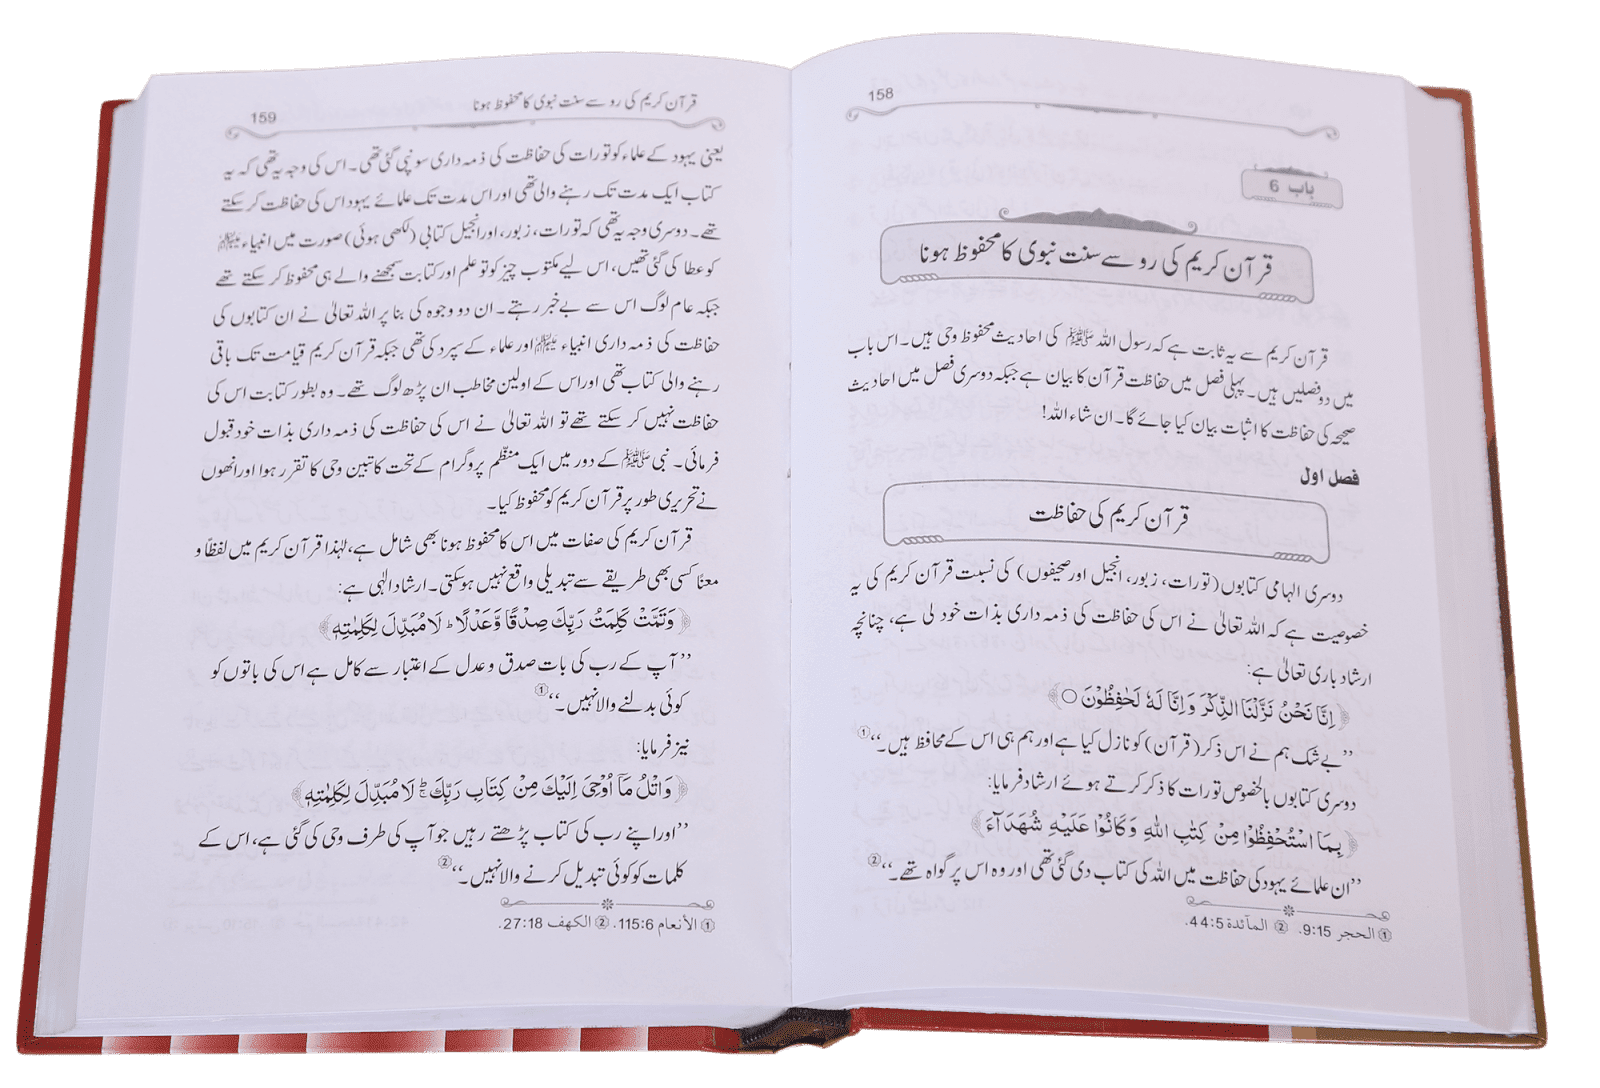 158
باب 6
قرآن کریم کی رو سے سنت نبوی کا محفوظ ہونا
قرآن کریم سے یہ ثابت ہے کہ رسول اللہ ﷺ کی احادیث محفوظ وحی ہیں۔ اس باب
میں دو فصلیں ہیں۔ پہلی فصل میں حفاظت قرآن کا بیان ہے جبکہ دوسری فصل میں احادیث
صحیحہ کی حفاظت کا اثبات بیان کیا جائے گا۔ ان شاء اللہ!
فصل اول
قرآن کریم کی حفاظت
دوسری الہامی کتابوں (تورات، زبور، انجیل اور صحیفوں) کی نسبت قرآن کریم کی یہ
خصوصیت ہے کہ اللہ تعالیٰ نے اس کی حفاظت کی ذمہ داری بذات خود لی ہے، چنانچہ
ارشاد باری تعالیٰ ہے:
﴿ اِنَّا نَحْنُ نَزَّلْنَا الذِّكْرَ وَاِنَّا لَهٗ لَحٰفِظُوْنَ ○ ﴾
’’بے شک ہم نے اس ذکر (قرآن) کو نازل کیا ہے اور ہم ہی اس کے محافظ ہیں۔‘‘①
دوسری کتابوں بالخصوص تورات کا ذکر کرتے ہوئے ارشاد فرمایا:
﴿ بِمَا اسْتُحْفِظُوْا مِنْ كِتٰبِ اللّٰهِ وَكَانُوْا عَلَيْهِ شُهَدَآءَ ﴾
’’ان علمائے یہود کی حفاظت میں اللہ کی کتاب دی گئی تھی اور وہ اس پر گواہ تھے۔‘‘②
① الحجر 9:15. ② المآئدة 44:5.
159
قرآن کریم کی رو سے سنت نبوی کا محفوظ ہونا
یعنی یہود کے علماء کو تورات کی حفاظت کی ذمہ داری سونپی گئی تھی۔ اس کی وجہ یہ تھی کہ یہ
کتاب ایک مدت تک رہنے والی تھی اور اس مدت تک علمائے یہود اس کی حفاظت کر سکتے
تھے۔ دوسری وجہ یہ تھی کہ تورات، زبور، اور انجیل کتابی (لکھی ہوئی) صورت میں انبیاء
کو عطا کی گئی تھیں، اس لیے مکتوب چیز کو تو علم اور کتابت سمجھنے والے ہی محفوظ کر سکتے تھے
جبکہ عام لوگ اس سے بے خبر رہتے۔ ان دو وجوہ کی بنا پر اللہ تعالیٰ نے ان کتابوں کی
حفاظت کی ذمہ داری انبیاء اور علماء کے سپرد کی تھی جبکہ قرآن کریم قیامت تک باقی
رہنے والی کتاب تھی اور اس کے اولین مخاطب ان پڑھ لوگ تھے۔ وہ بطور کتابت اس کی
حفاظت نہیں کر سکتے تھے تو اللہ تعالیٰ نے اس کی حفاظت کی ذمہ داری بذات خود قبول
فرمائی۔ نبی ﷺ کے دور میں ایک منظّم پروگرام کے تحت کاتبین وحی کا تقرر ہوا اور انھوں
نے تحریری طور پر قرآن کریم کو محفوظ کیا۔
قرآن کریم کی صفات میں اس کا محفوظ ہونا بھی شامل ہے، لہٰذا قرآن کریم میں لفظًا و
معنًا کسی بھی طریقے سے تبدیلی واقع نہیں ہو سکتی۔ ارشاد الٰہی ہے:
﴿ وَتَمَّتْ كَلِمَتُ رَبِّكَ صِدْقًا وَّعَدْلًا ؕ لَا مُبَدِّلَ لِكَلِمٰتِهٖ ﴾
’’آپ کے رب کی بات صدق و عدل کے اعتبار سے کامل ہے اس کی باتوں کو
کوئی بدلنے والا نہیں۔‘‘①
نیز فرمایا:
﴿ وَاتْلُ مَآ اُوْحِیَ اِلَيْكَ مِنْ كِتَابِ رَبِّكَ ۚ لَا مُبَدِّلَ لِكَلِمٰتِهٖ ﴾
’’اور اپنے رب کی کتاب پڑھتے رہیں جو آپ کی طرف وحی کی گئی ہے، اس کے
کلمات کو کوئی تبدیل کرنے والا نہیں۔‘‘②
① الأنعام 115:6. ② الكهف 27:18.